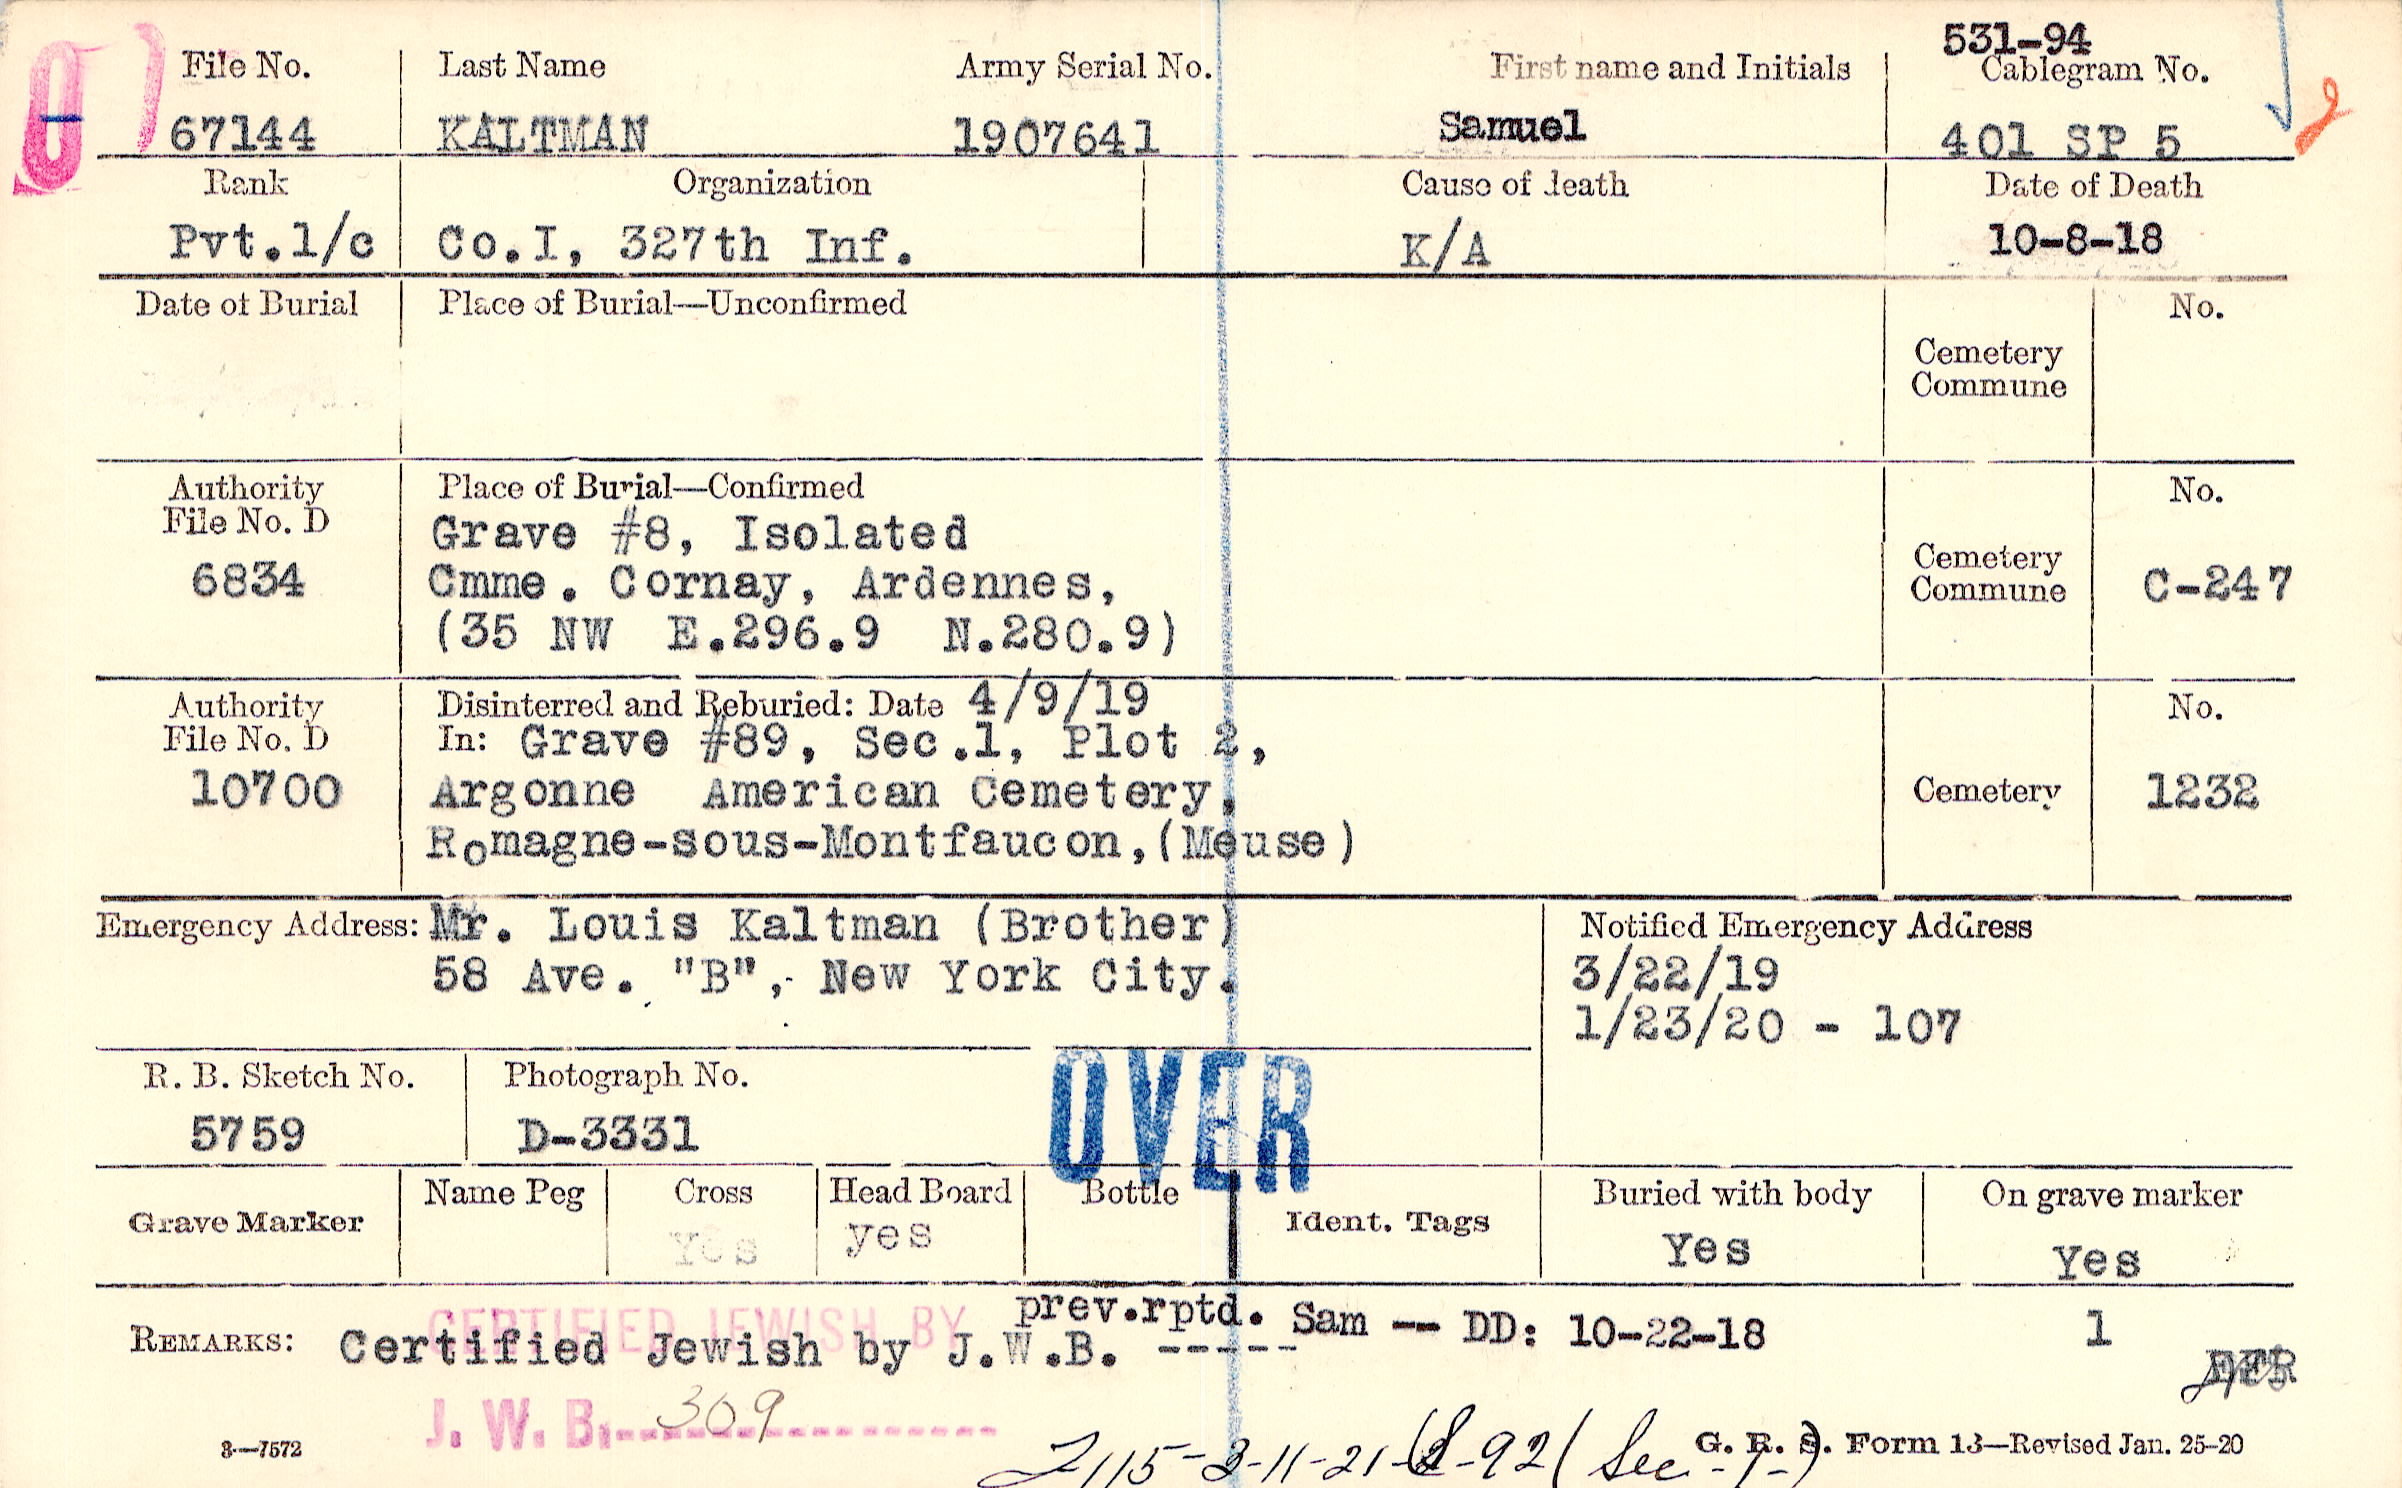 531-94
File No. Last Name Army Serial No. First name and Initials Cablegram No.
67144 KALTMAN 1907641 Samuel 401 SP 5
Rank Organization Cause of death Date of Death
Pvt.1/c Co.I, 327th Inf. K/A 10-8-18
Date of Burial Place of Burial—Unconfirmed No.
Cemetery
Commune
Authority Place of Burial—Confirmed No.
File No. D Grave #8, Isolated
6834 Cmme. Cornay, Ardennes, Cemetery Commune C-247
(35 NW E.296.9 N.280.9)
Authority Disinterred and Reburied: Date 4/9/19 No.
File No. D In: Grave #89, Sec.1, Plot 2,
10700 Argonne American Cemetery, Cemetery 1232
Romagne-sous-Montfaucon,(Meuse)
Emergency Address: Mr. Louis Kaltman (Brother) Notified Emergency Address
58 Ave. "B", New York City. 3/22/19
1/23/20 - 107
R. B. Sketch No. Photograph No. OVER
5759 D-3331
Grave Marker Name Peg Cross Head Board Bottle Ident. Tags Buried with body On grave marker
Yes yes Yes Yes
CERTIFIED JEWISH BY
prev.rptd. Sam -- DD: 10-22-18 1
REMARKS: Certified Jewish by J.W.B. -----
J. W. B. 309
3—7572 G. R. S. Form 13—Revised Jan. 25-20
2115-3-11-21 -92 (Sec.-1-)